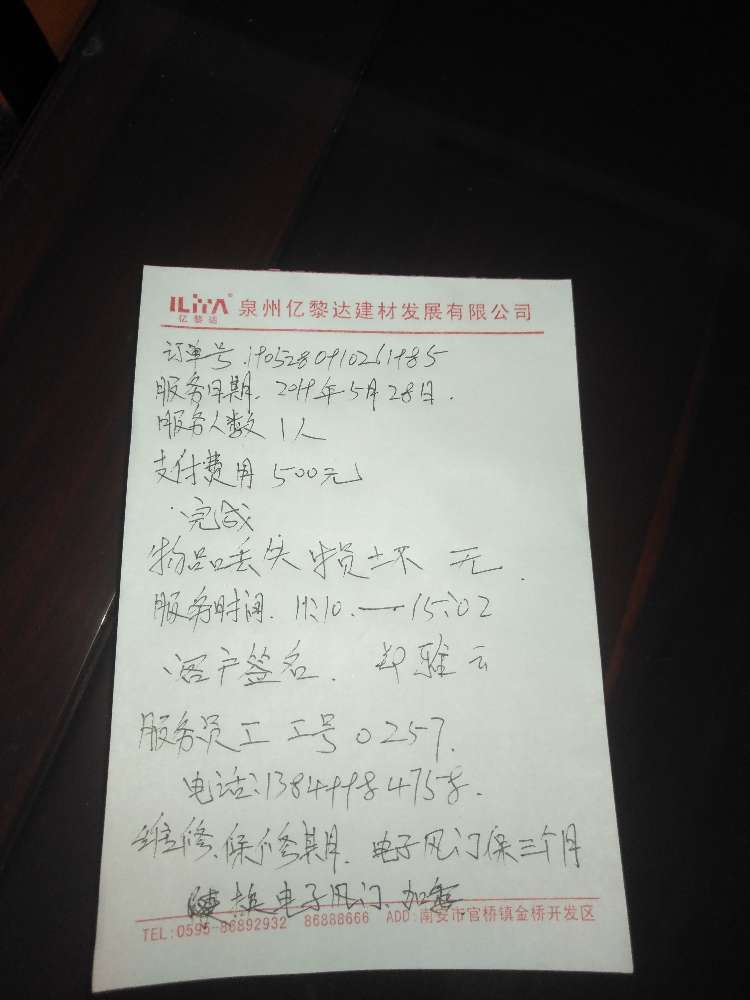 ILIYA®
亿黎达
泉州亿黎达建材发展有限公司
订单号.1905280910261985
服务日期.2019年5月28日.
服务人数 1人
支付费用 500元
完成
物品丢失 损坏 无.
服务时间. 11:10.—15:02
客户签名. 雅云
服务员工 工号0257.
电话:
维修.保修期.电子风门保三个月
换电子风门.加
TEL:0595-86892932 86888666 ADD:南安市官桥镇金桥开发区